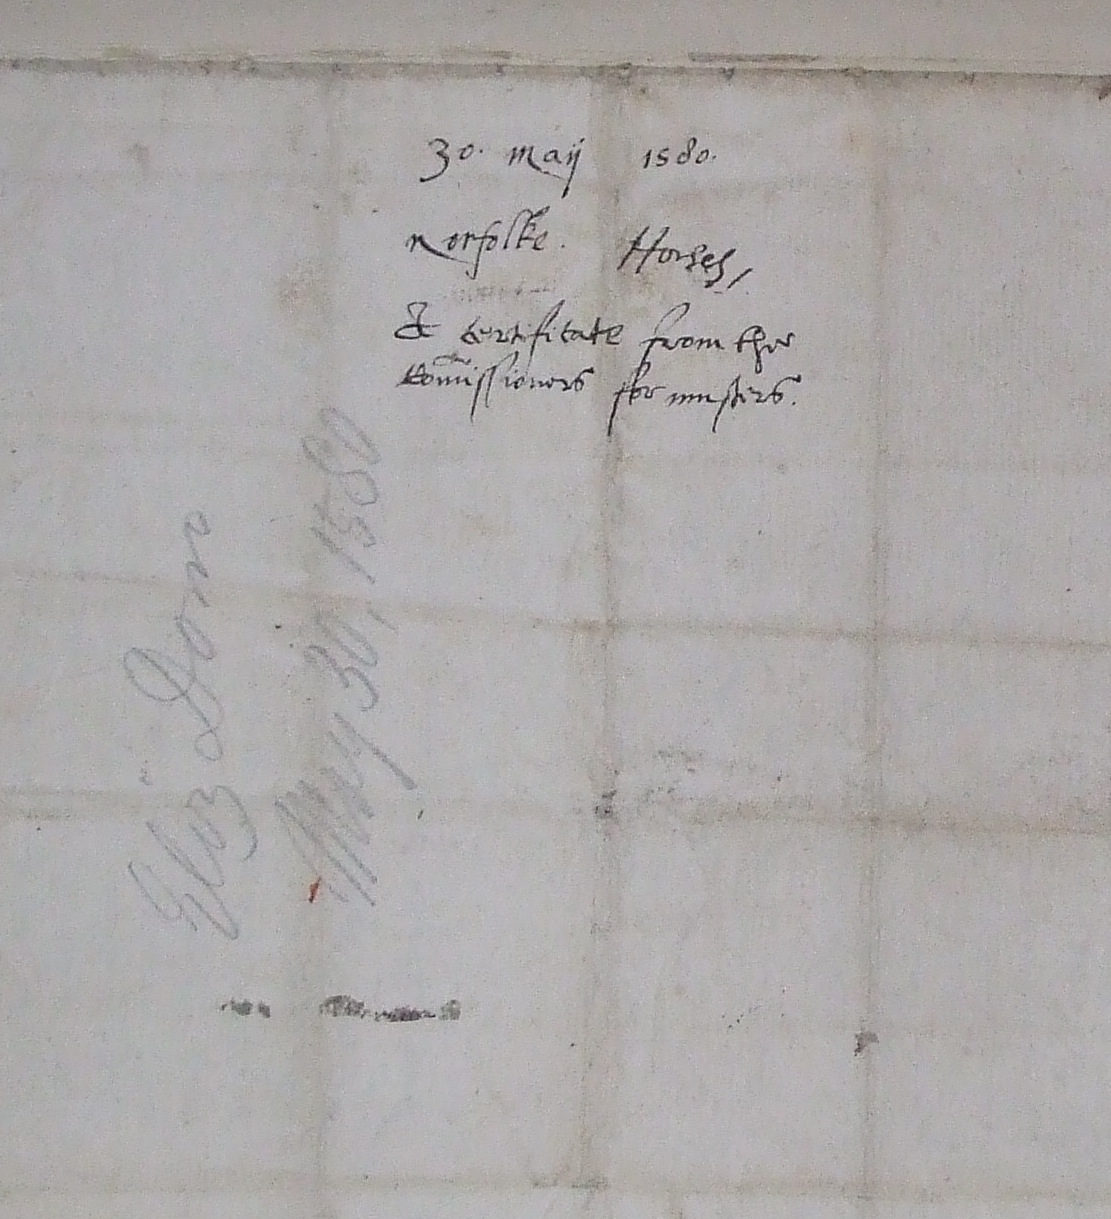 30. Maij 1580.
Norfolke. Horses,
A certificate from the
Comissioners for musters.
Eliz Dom
May 30, 1580